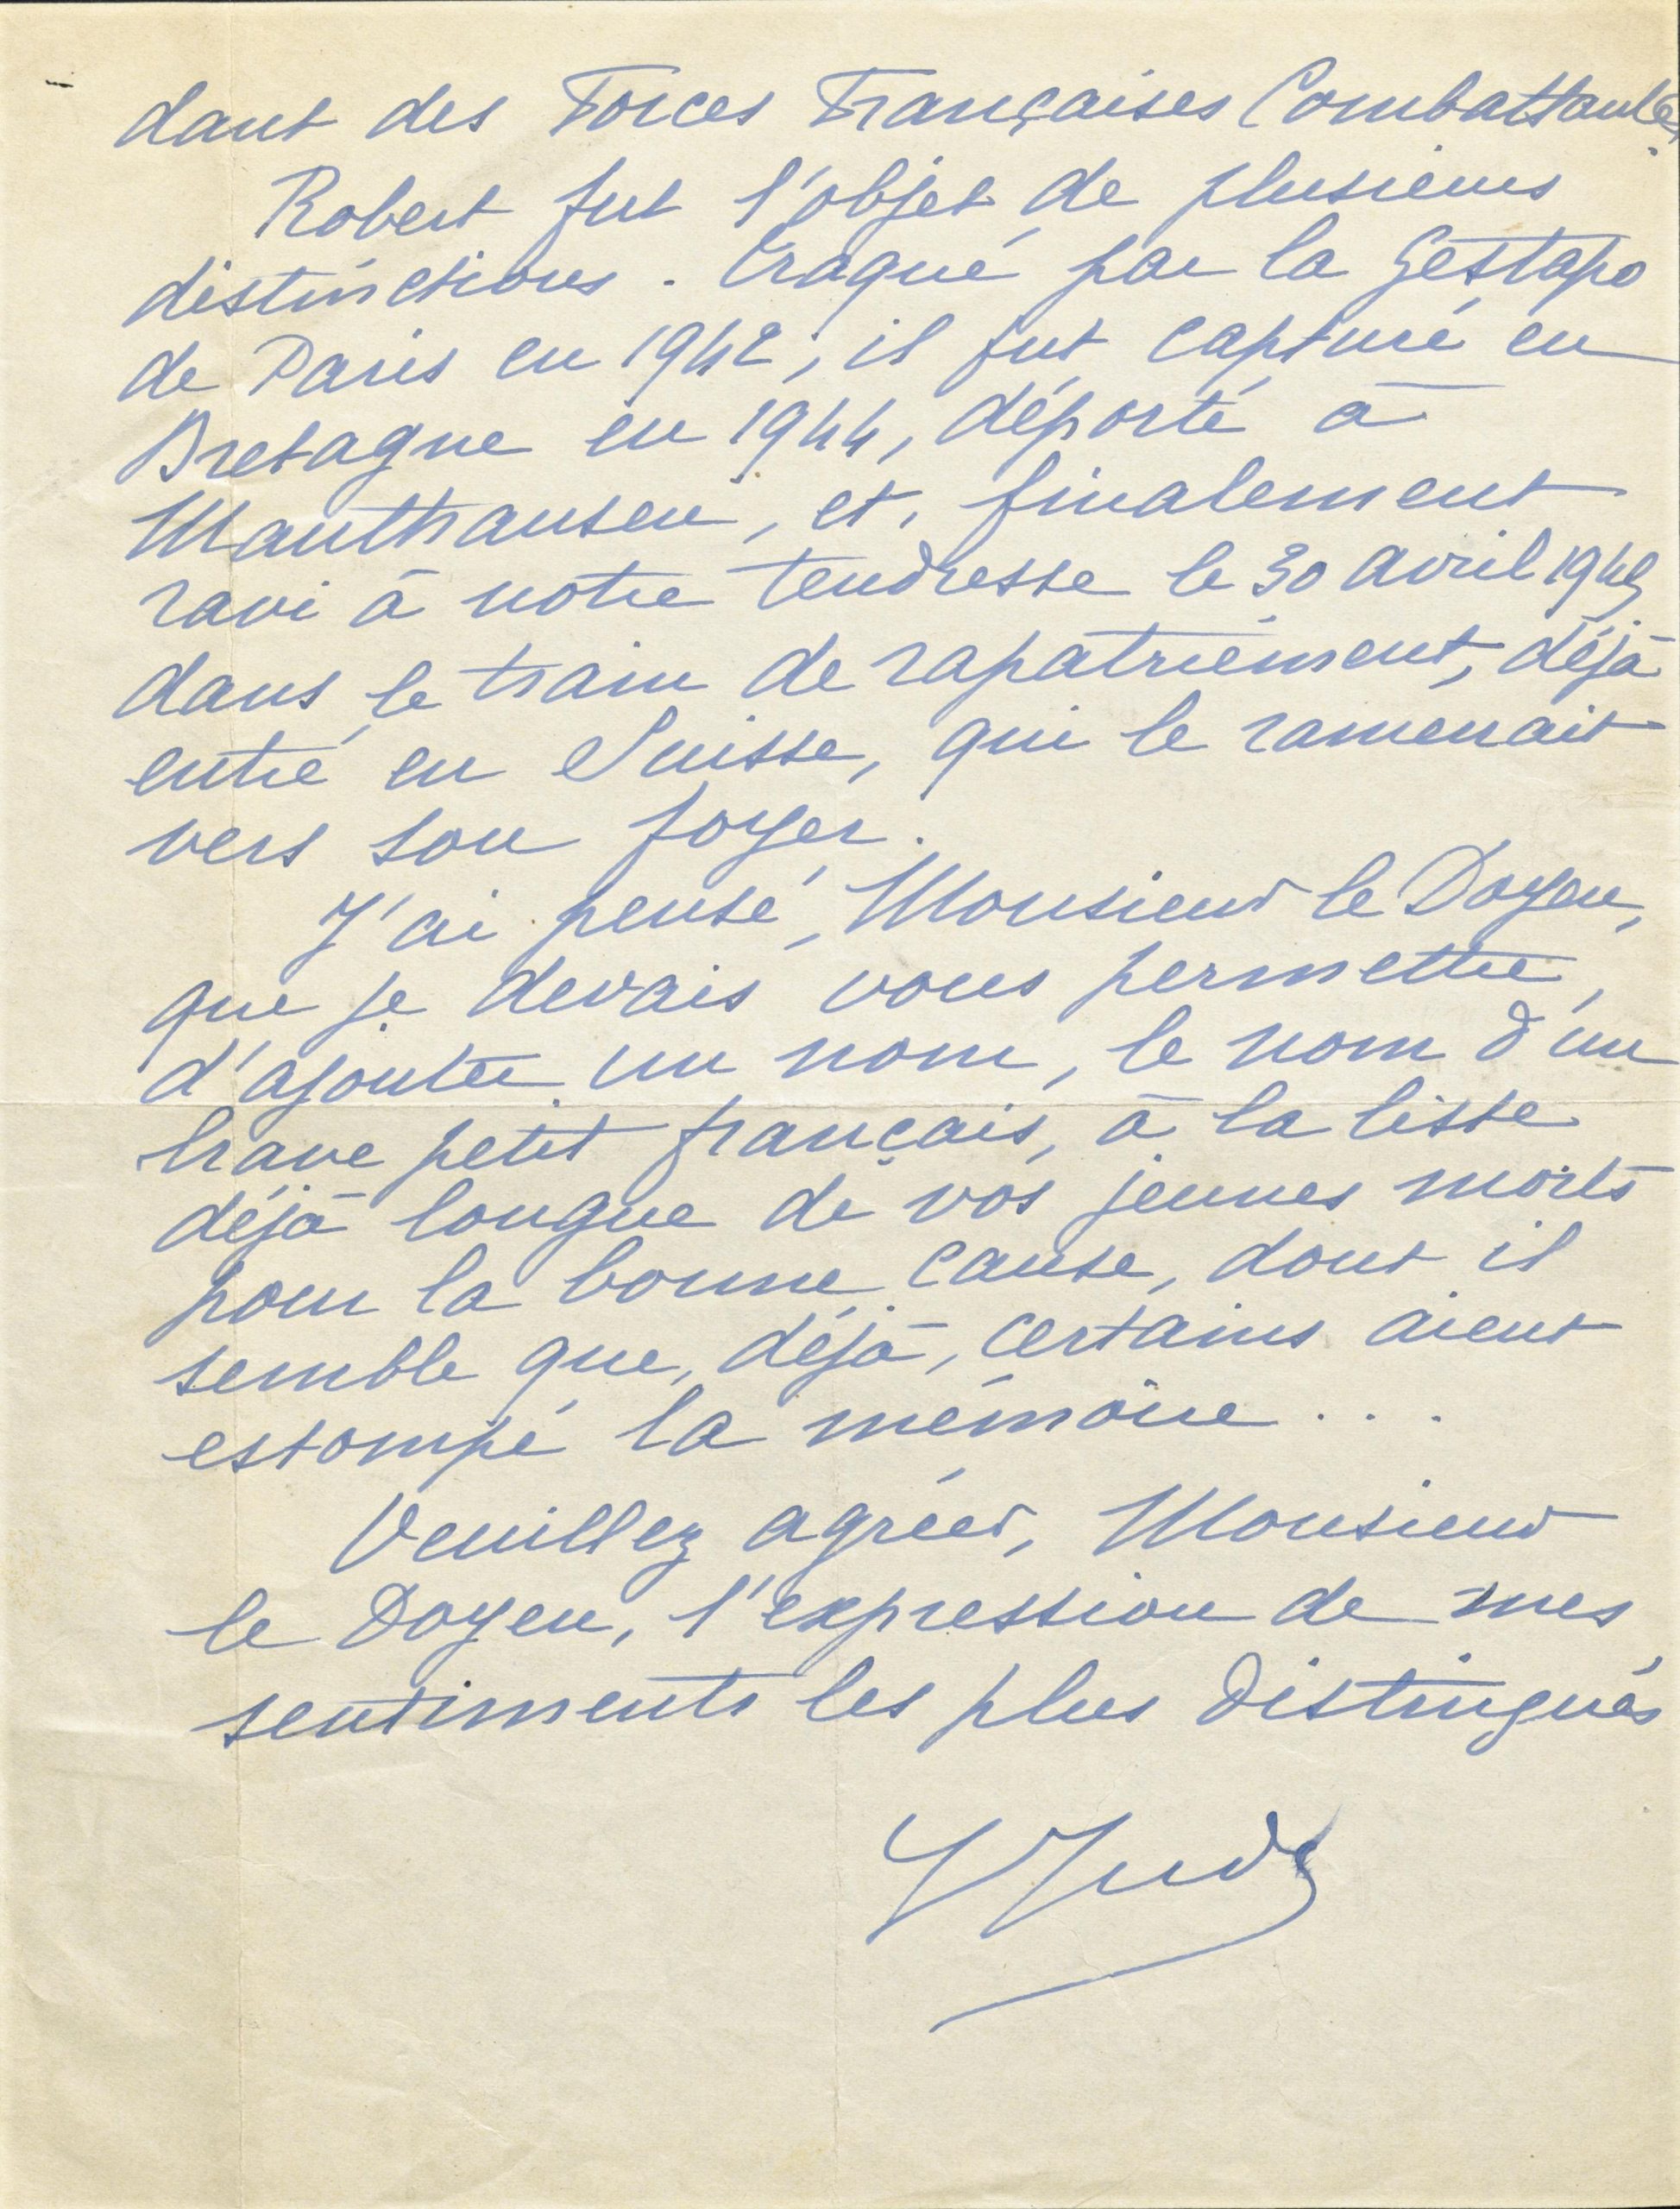 dant des Forces Françaises Combattantes.
Robert fut l'objet de plusieurs
distinctions. Traqué par la Gestapo
de Paris en 1942, il fut capturé en
Bretagne en 1944, déporté à
Mauthausen, et, finalement
ravi à notre tendresse le 30 avril 1945
dans le train de rapatriement, déjà
entré en Suisse, qui le ramenait
vers son foyer.
J'ai pensé, Monsieur le Doyen,
que je devais vous permettre
d'ajouter un nom, le nom d'un
brave petit français, à la liste
déjà longue de vos jeunes morts
pour la bonne cause, dont il
semble que, déjà, certains aient
estompé la mémoire...
Veuillez agréer, Monsieur
le Doyen, l'expression de mes
sentiments les plus distingués